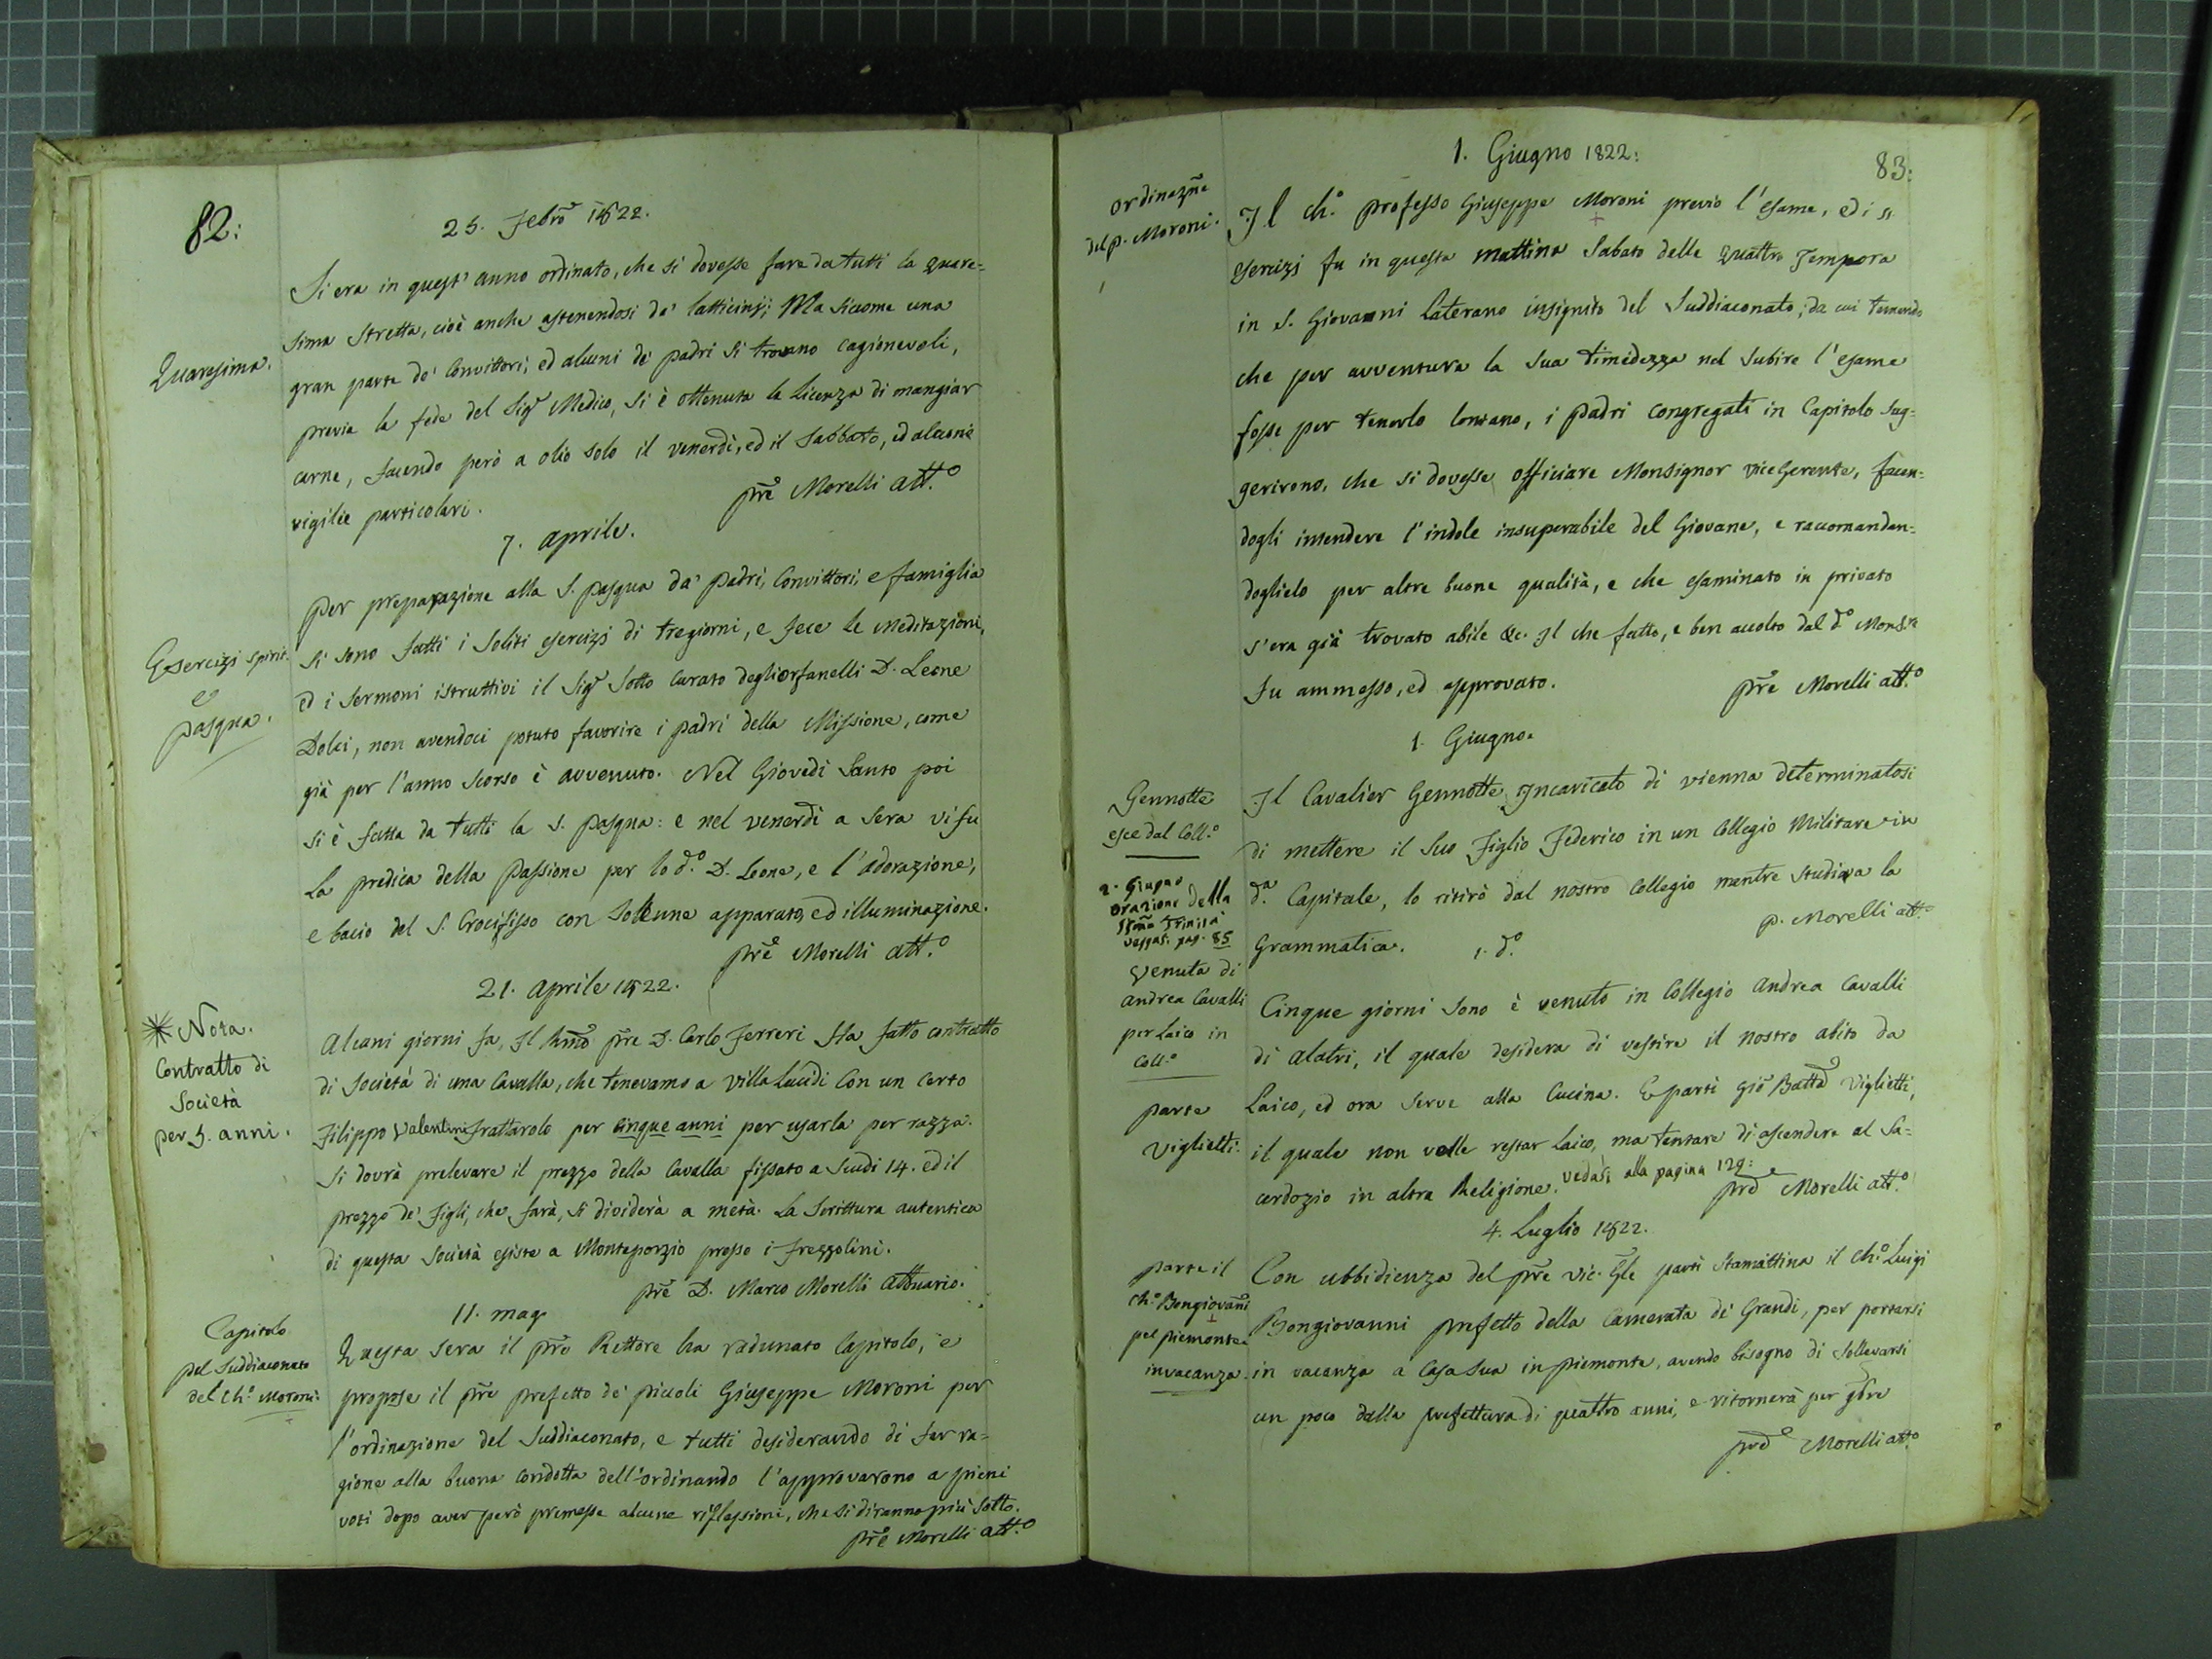 82:
25. Febrō 1822.
Quaresima.
Si era in quest' anno ordinato, che si dovesse fare da tutti la quare=
sima stretta, cioè anche astenendosi da' latticinj; Ma siccome una
gran parte de' Convittori, ed alcuni de' padri si trovano cagionevoli,
previa la fede del Sigr Medico, si è ottenuta la licenza di mangiar
carne, facendo però a olio solo il venerdì, ed il Sabbato, ed alcune
vigilie particolari.
prē Morelli att.o
7. aprile.
Esercizj spirit.
e
pasqua.
per preparazione alla S. pasqua da' padri, Convittori, e famiglia
si sono fatti i soliti esercizj di tregiorni, e fece le meditazioni,
ed i sermoni istruttivi il Sigr Sotto Curato degliorfanelli D. Leone
Dolci, non avendoci potuto favorire i padri della Missione, come
già per l'anno scorso è avvenuto. Nel Giovedì Santo poi
si è fatta da tutti la S. pasqua: e nel venerdì a sera vi fu
La predica della Passione per lo do. D. Leone, e l'adorazione,
e bacio del S. Crocifisso con solenne apparato, ed illuminazione.
prē Morelli att.o
21. aprile 1822.
* Nota.
Contratto di
Società
per 5. anni.
Alcuni giorni fa, Il Rmō prē D. Carlo Ferreri ha fatto contratto
di società di una Cavalla, che tenevamo a villa Lucidi Con un certo
Filippo Valentini Frattarolo per cinque anni per usarla per razza.
Si dovrà prelevare il prezzo della Cavalla fissato a Scudi 14. ed il
prezzo de' Figli, che farà, si dividerà a metà. La Scrittura autentica
di questa società esiste a Monteporzio presso i Frezzolini.
prē D. Marco Morelli Attuario.
11. mago
Capitolo
pel Suddiaconato
del Ch.o Moroni.
Questa sera il prē Rettore ha radunato Capitolo, e
propose il prē prefetto de' piccoli Giuseppe Moroni per
l'ordinazione del Suddiaconato, e tutti desiderando di far ra=
gione alla buona condotta dell'ordinando l'approvarono a pieni
voti dopo aver però premesse alcune riflessioni, che si diranno più sotto.
prē Morelli att.o
83:
1. Giugno 1822:
Ordinazn̄e
del p. Moroni.
Il ch.o professo Giuseppe Moroni previo l'esame, ed i ss.
esercizj fu in questa mattina Sabato delle Quattro Tempora
in S. Giovanni Laterano insignito del Suddiaconato; da cui temendo
che per avventura la sua timidezza nel subire l'esame
fosse per tenerlo lontano, i padri congregati in Capitolo sug=
gerirono, che si dovesse officiare Monsignor viceGerente, facen=
dogli intendere l'indole insuperabile del Giovane, e raccomandan=
doglielo per altre buone qualità, e che esaminato in privato
s'era già trovato abile &c. Il che fatto, e ben accolto dal do. Monsre
fu ammesso, ed approvato.
prē Morelli att.o
1. Giugno.
Gennotte
esce dal Coll.o
Il Cavalier Gennotte Incaricato di vienna determinatosi
di mettere il suo Figlio Federico in un Collegio Militare in
da. Capitale, lo ritirò dal nostro Collegio mentre studiava la
Grammatica.
p. Morelli att.o
2. Giugno
Orazione della
SSmā Trinità
veggasi pag. 85
1. do.
Venuta di
Andrea Cavalli
per Laico in
Coll.o
Cinque giorni sono è venuto in Collegio Andrea Cavalli
di Alatri, il quale desidera di vestire il nostro abito da
Laico, ed ora serve alla Cucina. E partì Giō Battā Viglietti,
parte
Viglietti.
il quale non volle restar Laico, ma tentare di ascendere al Sa=
cerdozio in altra Religione. vedasi alla pagina 129:
prē Morelli att.o
4. Luglio 1822.
parte il
Ch.o Bongiovan̄i
pel piemonte
in vacanza.
Con ubbidienza del prē vic. Gl̄e partì stamattina il Ch.o Luigi
Bongiovanni prefetto della Camerata de' Grandi, per portarsi
in vacanza a Casa sua in piemonte, avendo bisogno di sollevarsi
un poco dalla prefettura di quattro anni, e ritornerà per 9bre
prē Morelli att.o